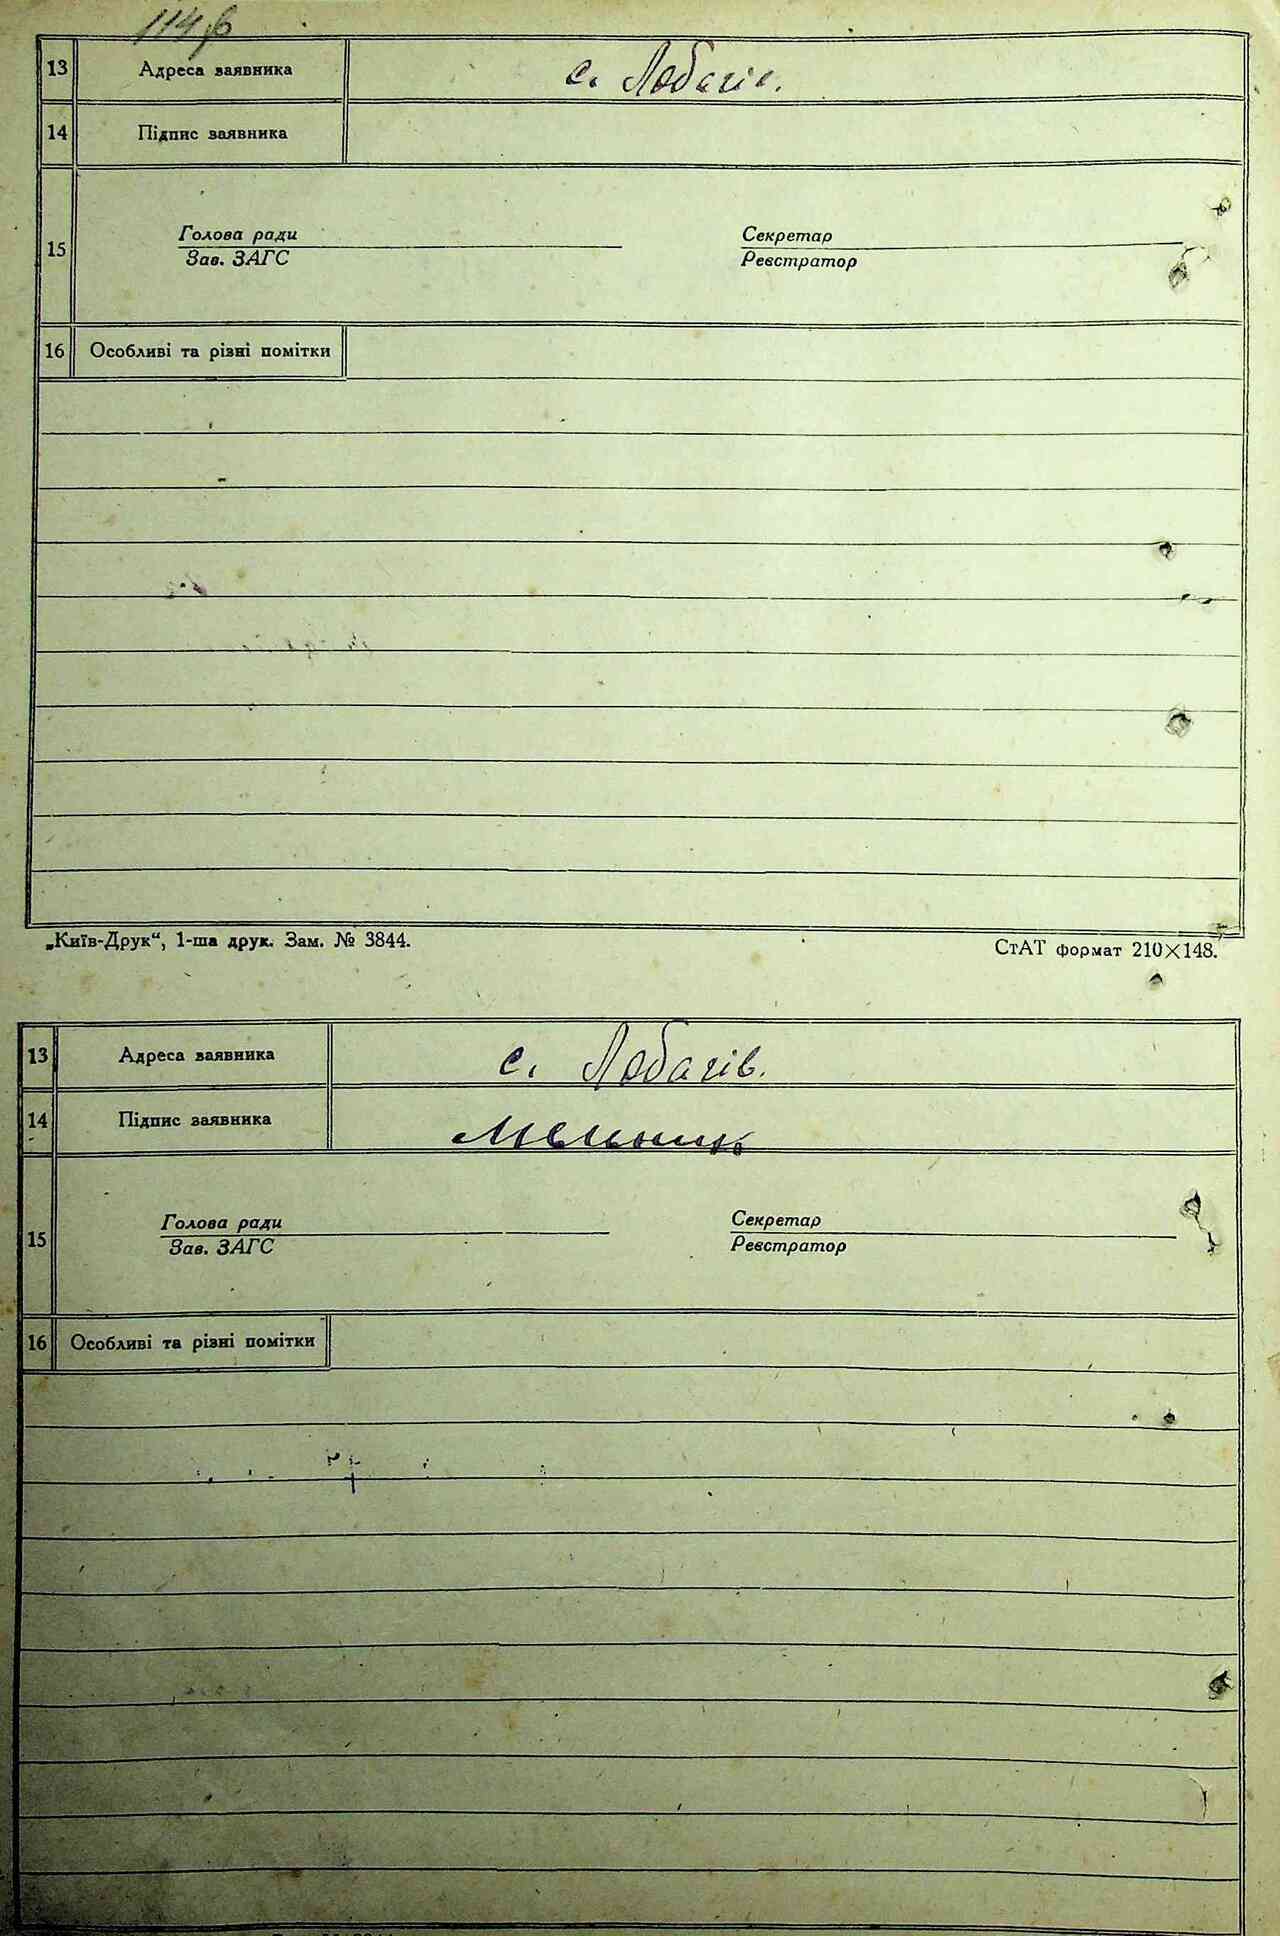 114
13 Адреса заявника с. Лобачів.
14 Підпис заявника
15 Голова ради Секретар
Зав. ЗАГС Реєстратор
16 Особливі та різні помітки
„Київ-Друк“, 1-ша друк. Зам. № 3844. СтАТ формат 210×148.
13 Адреса заявника с. Лобачів.
14 Підпис заявника Мельник
15 Голова ради Секретар
Зав. ЗАГС Реєстратор
16 Особливі та різні помітки